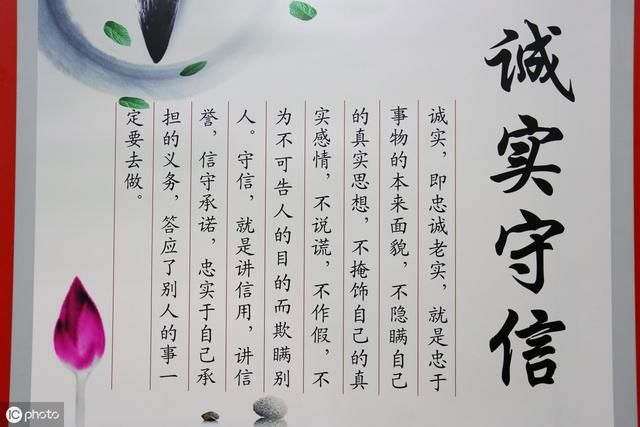 诚实守信
诚实，即忠诚老实，就是忠于
事物的本来面貌，不隐瞒自己
的真实思想，不掩饰自己的真
实感情，不说谎，不作假，不
为不可告人的目的而欺瞒别
人。守信，就是讲信用，讲信
誉，信守承诺，忠实于自己承
担的义务，答应了别人的事一
定要去做。
IC photo